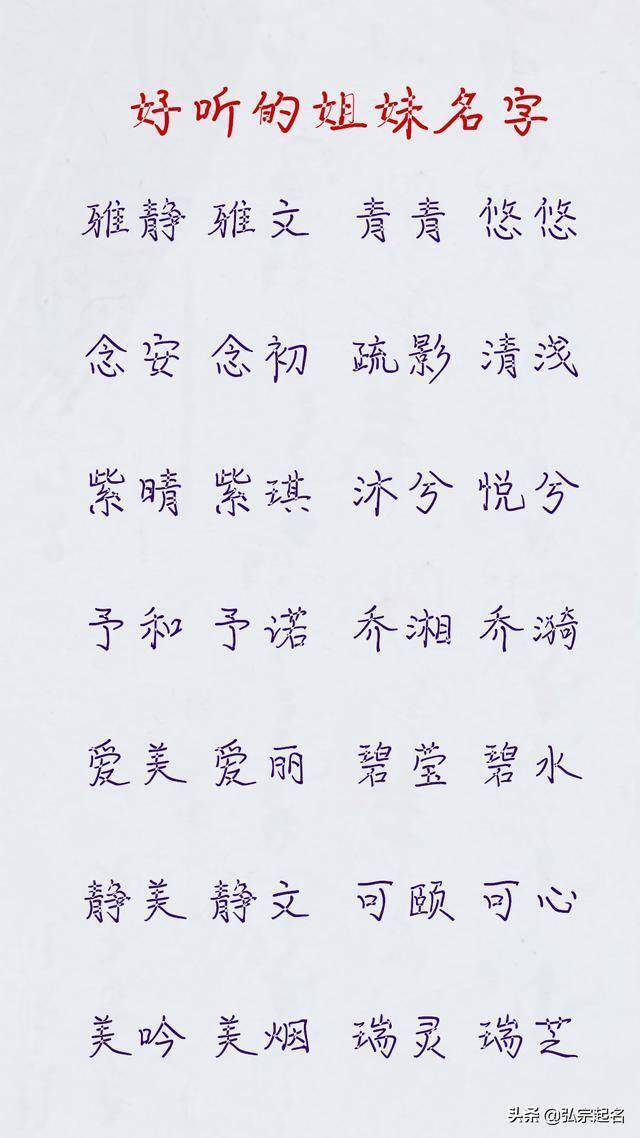 好听的姐妹名字
雅静 雅文 青青 悠悠
念安 念初 疏影 清浅
紫晴 紫琪 沐兮 悦兮
予和 予诺 乔湘 乔漪
爱美 爱丽 碧莹 碧水
静美 静文 可颐 可心
美吟 美烟 瑞灵 瑞芝
头条 @弘宗起名